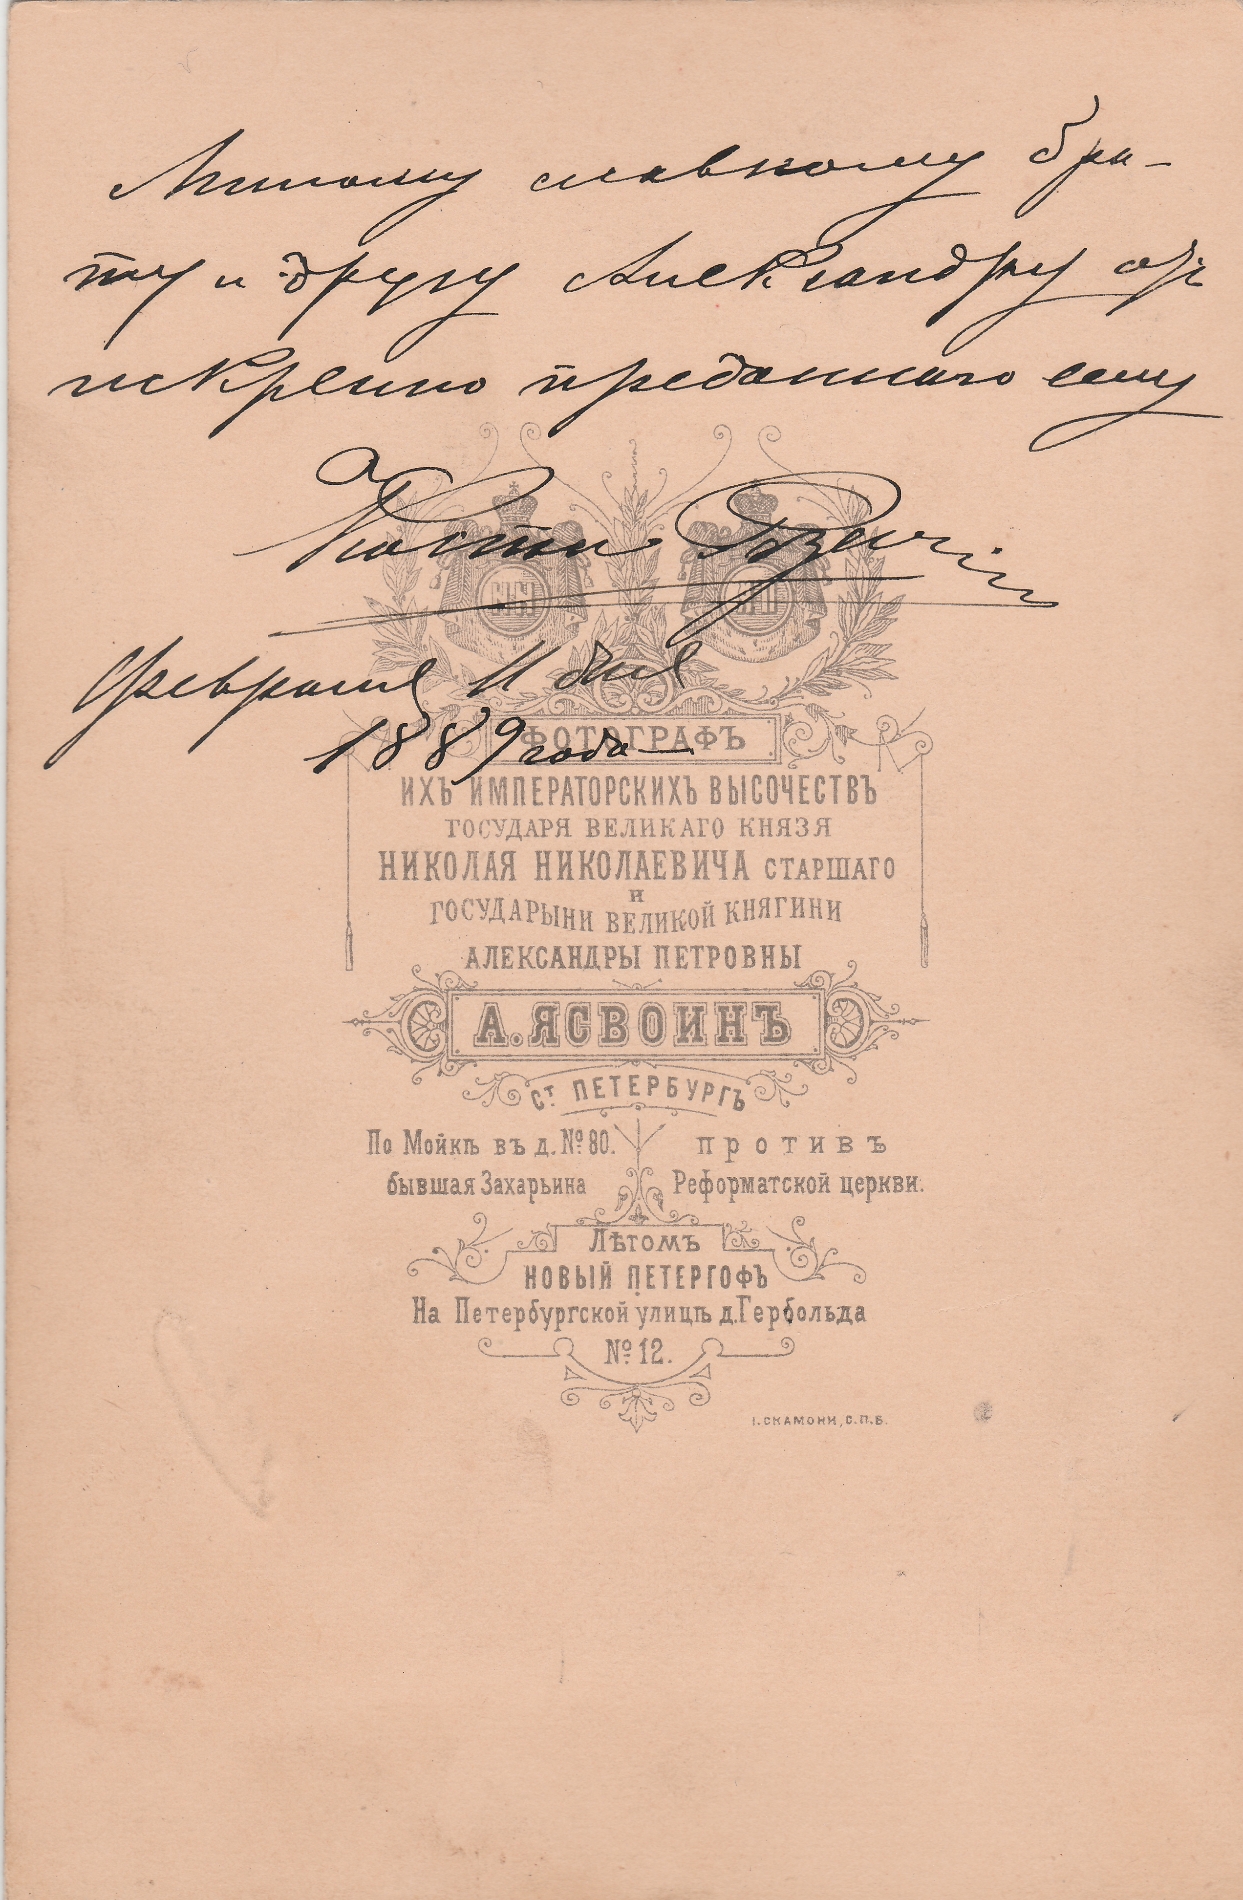 Милому славному бра-
ту и другу Александру отъ
искренно преданнаго ему
Кости
Февраля 11 дня
1889 года
ФОТОГРАФЪ
ИХЪ ИМПЕРАТОРСКИХЪ ВЫСОЧЕСТВЪ
ГОСУДАРЯ ВЕЛИКАГО КНЯЗЯ
НИКОЛАЯ НИКОЛАЕВИЧА СТАРШАГО
И
ГОСУДАРЫНИ ВЕЛИКОЙ КНЯГИНИ
АЛЕКСАНДРЫ ПЕТРОВНЫ
А. ЯСВОИНЪ
СТ ПЕТЕРБУРГЪ
По Мойкѣ въ д. № 80. противъ
бывшая Захарьина Реформатской церкви.
ЛѢТОМЪ
НОВЫЙ ПЕТЕРГОФЪ
На Петербургской улицѣ д. Гербольда
№ 12.
І. СКАМОНИ, С.П.Б.